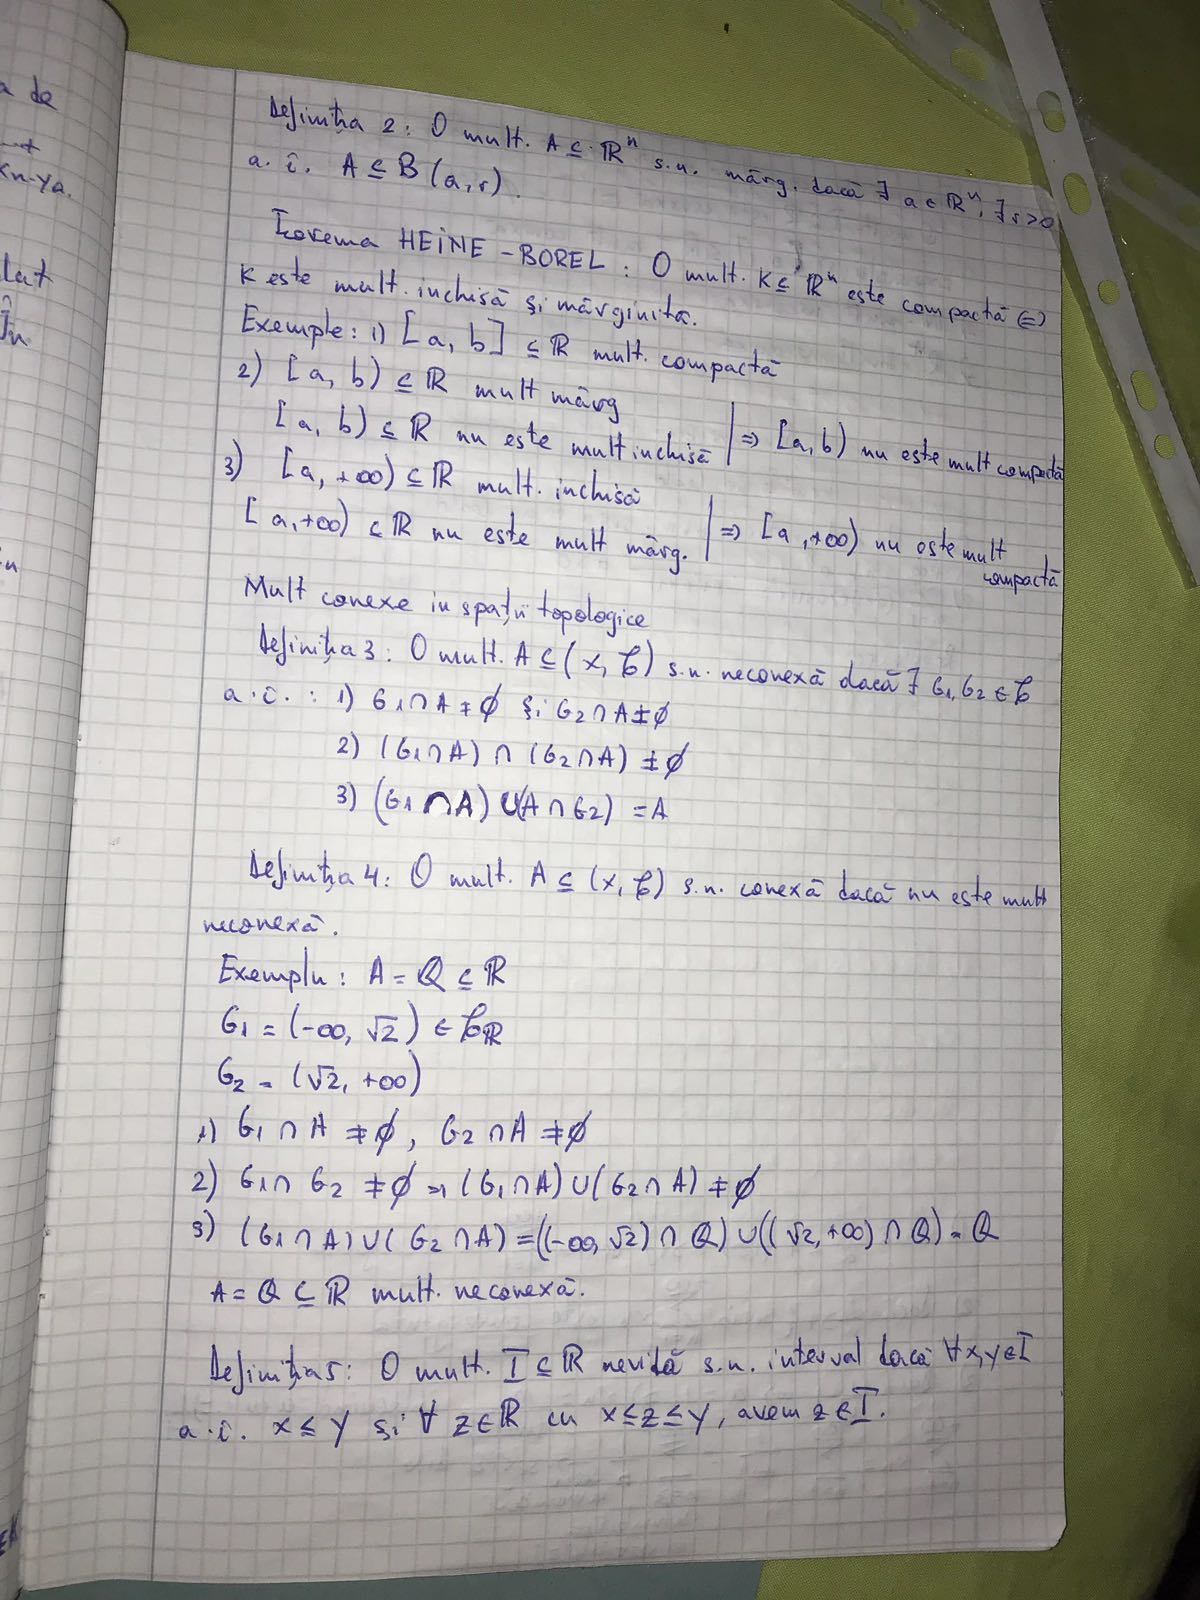 a de
xn-ya.
lat
Definiția 2: O mult. A ⊆ ℝⁿ s.n. mărg. dacă ∃ a∈ℝⁿ, ∃ r>0
a. î. A ⊆ B(a,r).
Teorema HEINE-BOREL: O mult. K⊆ ℝⁿ este compactă (=)
K este mult. inchisă și mărginita.
Exemple: 1) [a, b] ⊆ ℝ mult. compactă
2) [a, b) ⊆ ℝ mult mărg
[a, b) ⊆ ℝ nu este mult inchisă | => [a,b) nu este mult compactă
3) [a, +∞) ⊆ ℝ mult. inchisă
[a,+∞) ⊆ ℝ nu este mult mărg. | => [a,+∞) nu este mult
compactă
Mult conexe in spații topologice
Definiția 3: O mult. A⊆(x, τ) s.n. neconexă dacă ∃ G1,G2 ∈ τ
a.î.: 1) G1∩A≠∅ și G2∩A≠∅
2) (G1∩A) ∩ (G2∩A) ≠∅
3) (G1∩A) ∪(A∩G2) = A
Definiția 4: O mult. A ⊆ (x, τ) s.n. conexă dacă nu este mult
neconexă.
Exemplu: A = ℚ ⊆ ℝ
G1 = (-∞, √2) ∈ τℝ
G2 = (√2, +∞)
1) G1 ∩ A ≠∅, G2 ∩ A ≠∅
2) G1∩ G2 ≠∅ => (G1∩A) ∪ (G2∩A) ≠∅
3) (G1∩A) ∪ (G2∩A) =((-∞,√2) ∩ ℚ) ∪((√2, +∞) ∩ ℚ) = ℚ
A = ℚ ⊆ ℝ mult. neconexă.
Definiția 5: O mult. I ⊆ ℝ nevidă s.n. interval dacă ∀x,y∈I
a.î. x ≤ y și ∀ z∈ℝ cu x≤z≤y, avem z∈I.